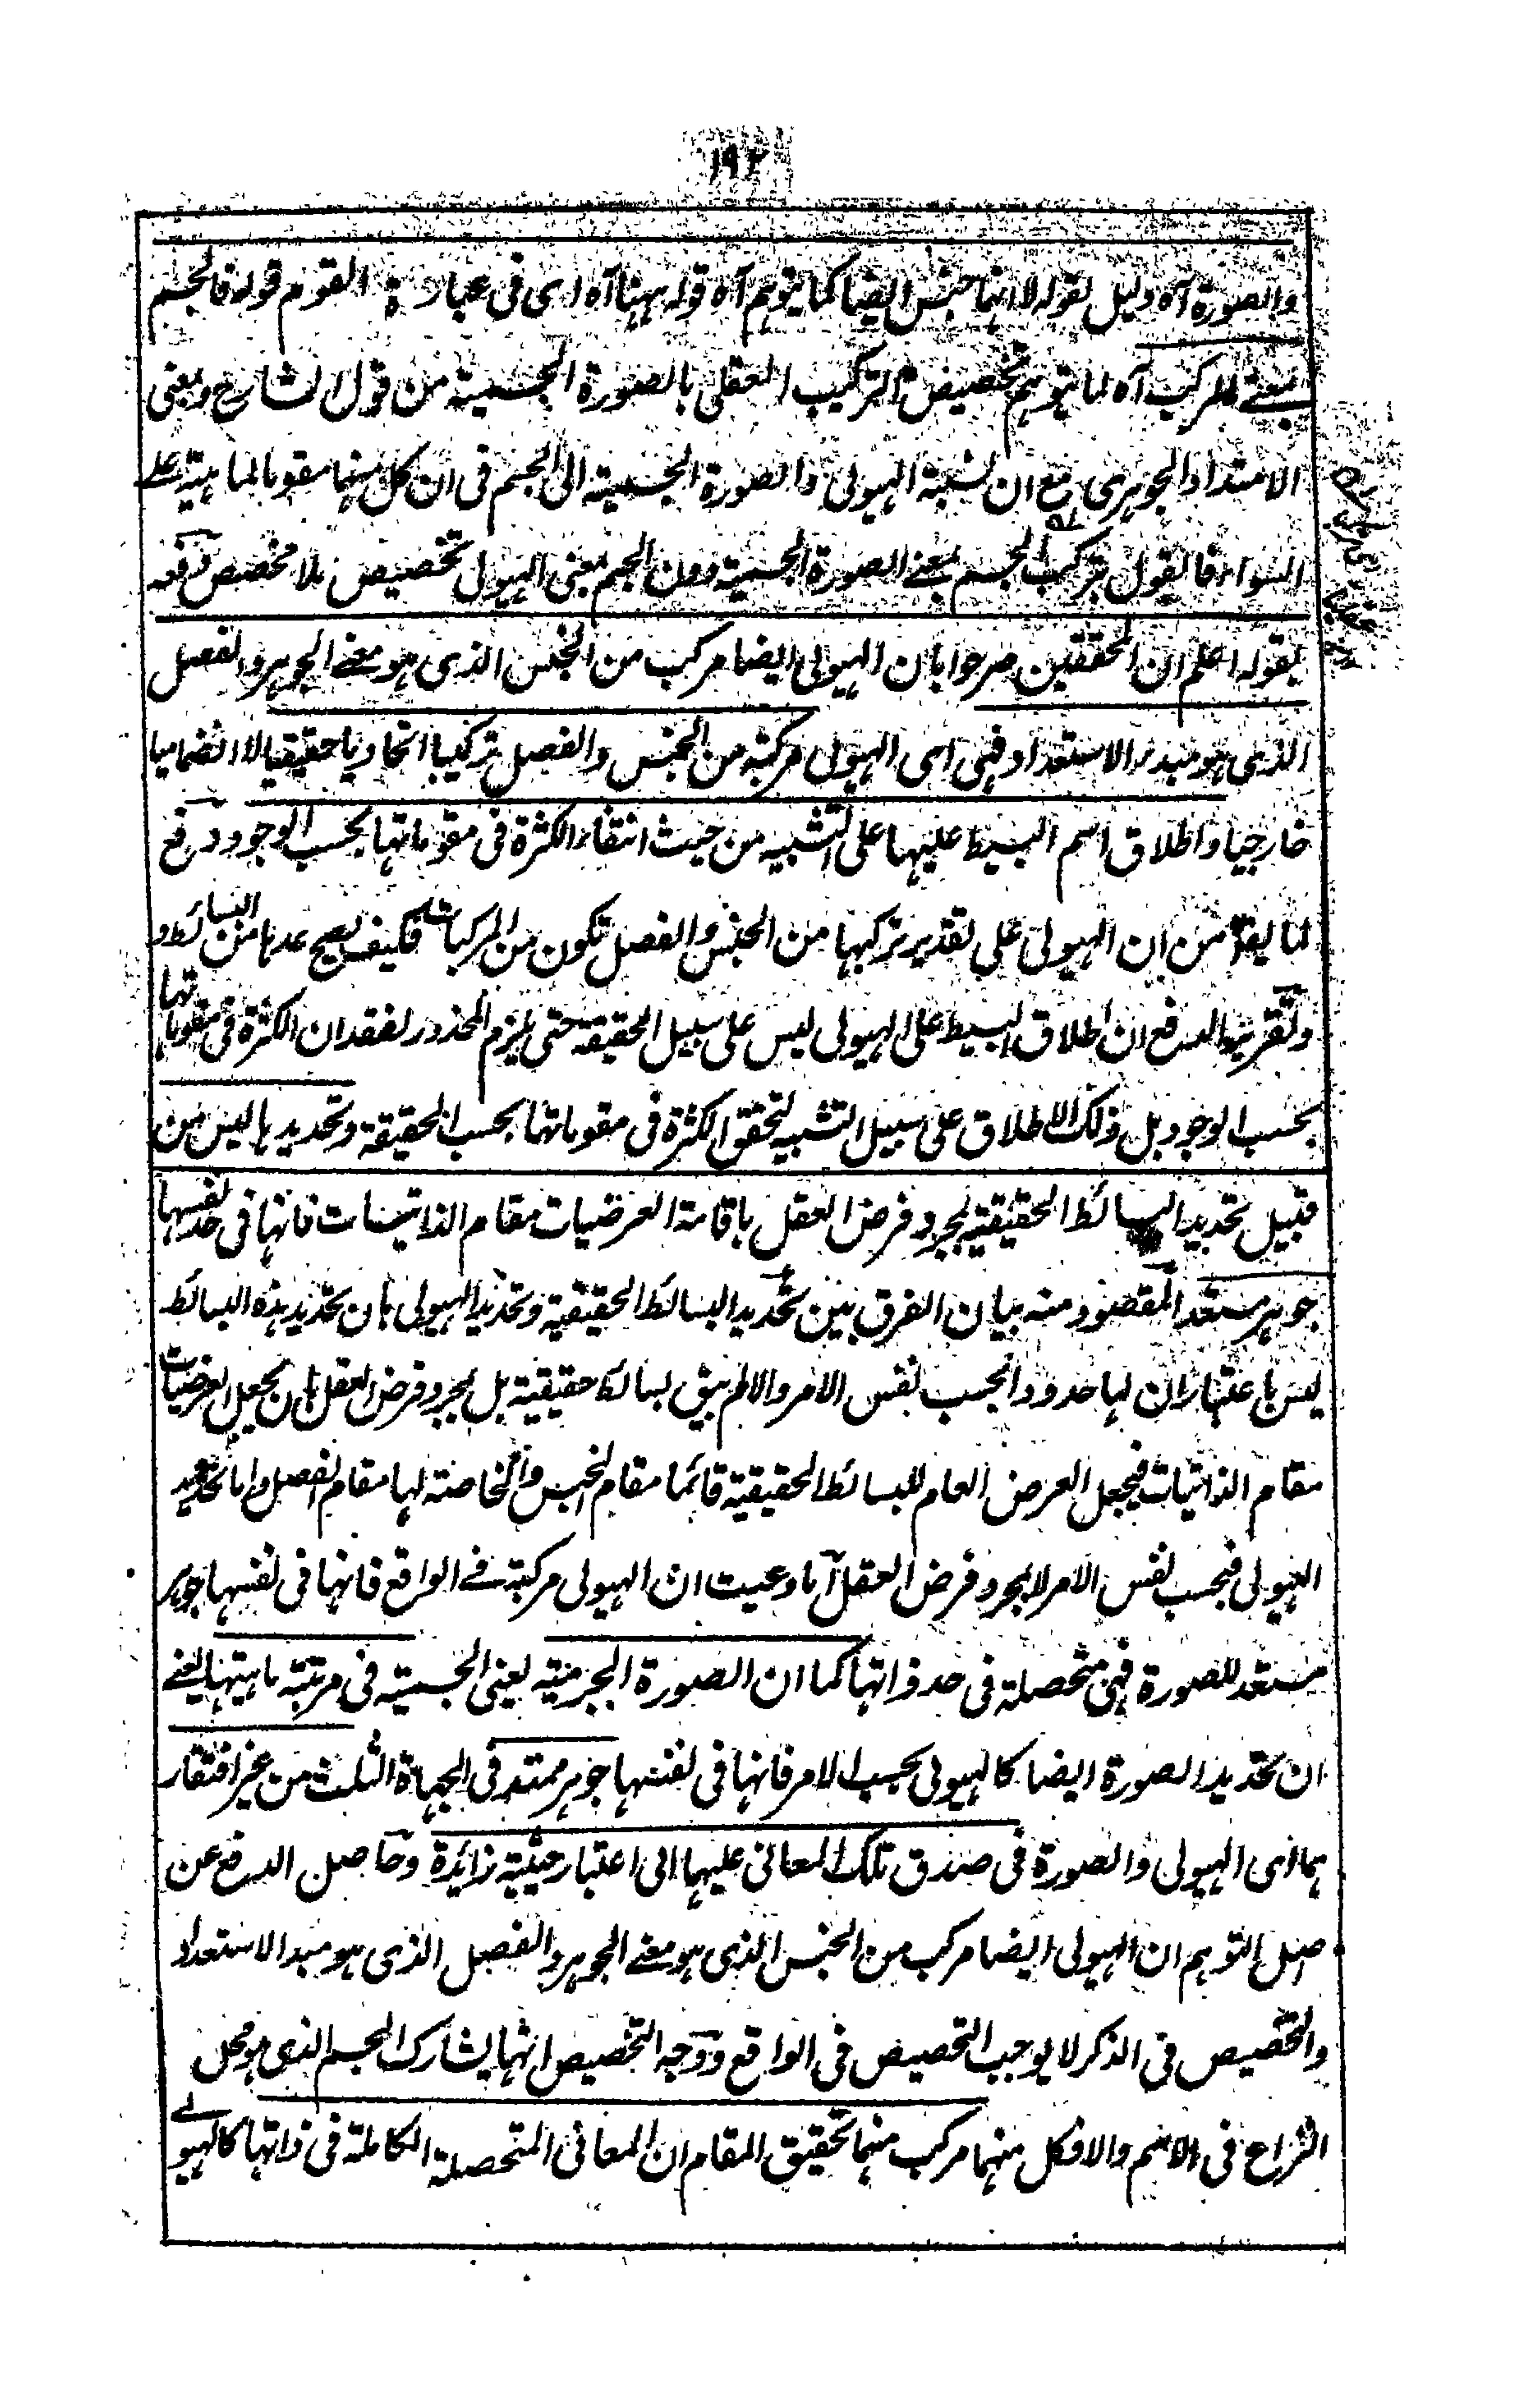 ١٩٢
والصورة آه دليل لقوله لا انهما جنس ايضا كما يتوهم آه قوله ههنا آه اى فى عبارة القوم قوله فالجسم
بمعنى المركب آه لما يتوهم تخصيص التركيب العقلى بالصورة الجسمية من قول الشارح وبمعنى
الامتداد الجوهرى مع ان نسبة الهيولى والصورة الجسمية الى الجسم فى ان كل منهما مقوما لماهيته على
السواء فالقول بتركب الجسم بمعنى الصورة الجسمية دون الجسم بمعنى الهيولى تخصيص بلا مخصص دفعه
بقوله اعلم ان المحققين صرحوا بان الهيولى ايضا مركب من الجنس الذى هو معنى الجوهر والفصل
الذى هو مبدء الاستعداد فهى اى الهيولى مركبة من الجنس والفصل تركيبا اتحاديا حقيقيا لا انضماميا
خارجيا واطلاق اسم البسيط عليها على التشبيه من حيث انتفاء الكثرة فى مقوماتها بحسب الوجود دفع
لما يقال من ان الهيولى على تقدير تركبها من الجنس والفصل تكون من المركبات فكيف يصح عدها من البسائط و
وتقرير الدفع ان اطلاق البسيط على الهيولى ليس على سبيل الحقيقة حتى يلزم المحذور لفقدان الكثرة فى مقوماتها
بحسب الوجود بل ذلك الاطلاق على سبيل التشبيه لتحقق الكثرة فى مقوماتها بحسب الحقيقة وتحديدها ليس من
قبيل تحديد البسائط الحقيقية بمجرد فرض العقل باقامة العرضيات مقام الذاتيات فانها فى حد نفسها
جوهر مستعد المقصود منه بيان الفرق بين تحديد البسائط الحقيقية وتحديد الهيولى بان تحديد هذه البسائط
ليس باعتبار ان لها حدودا بحسب نفس الامر والا لم يبق بسائط حقيقية بل بمجرد فرض العقل بان يجعل العرضيات
مقام الذاتيات فيجعل العرض العام للبسائط الحقيقية قائما مقام الجنس والخاصة لها مقام الفصل واما تحديد
الهيولى فبحسب نفس الامر لا بمجرد فرض العقل اما دعيت ان الهيولى مركبة فى الواقع فانها فى نفسها جوهر
مستعد للصورة فهى متحصلة فى حد ذاتها كما ان الصورة الجرمية يعنى الجسمية فى مرتبة ماهيتها يعنى
ان تحديد الصورة ايضا كالهيولى بحسب الامر فانها فى نفسها جوهر ممتد فى الجهاة الثلث من غير افتقار
هما اى الهيولى والصورة فى صدق تلك المعانى عليها الى اعتبار حيثية زائدة وحاصل الدفع عن
اصل التوهم ان الهيولى ايضا مركب من الجنس الذى هو معنى الجوهر والفصل الذى هو مبدا الاستعداد
والتخصيص فى الذكر لا يوجب التخصيص فى الواقع ووجه التخصيص انهما يشارك الجسم الذى هو محل
النزاع فى الاسم والا فكل منهما مركب منهما تحقيق المقام ان المعانى المتحصلة الكاملة فى ذاتها كالهيولى